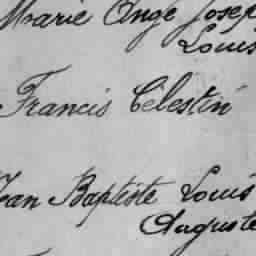 Marie Ange Josep
Louis
Francis Célestin
Jean Baptiste Louis
Auguste